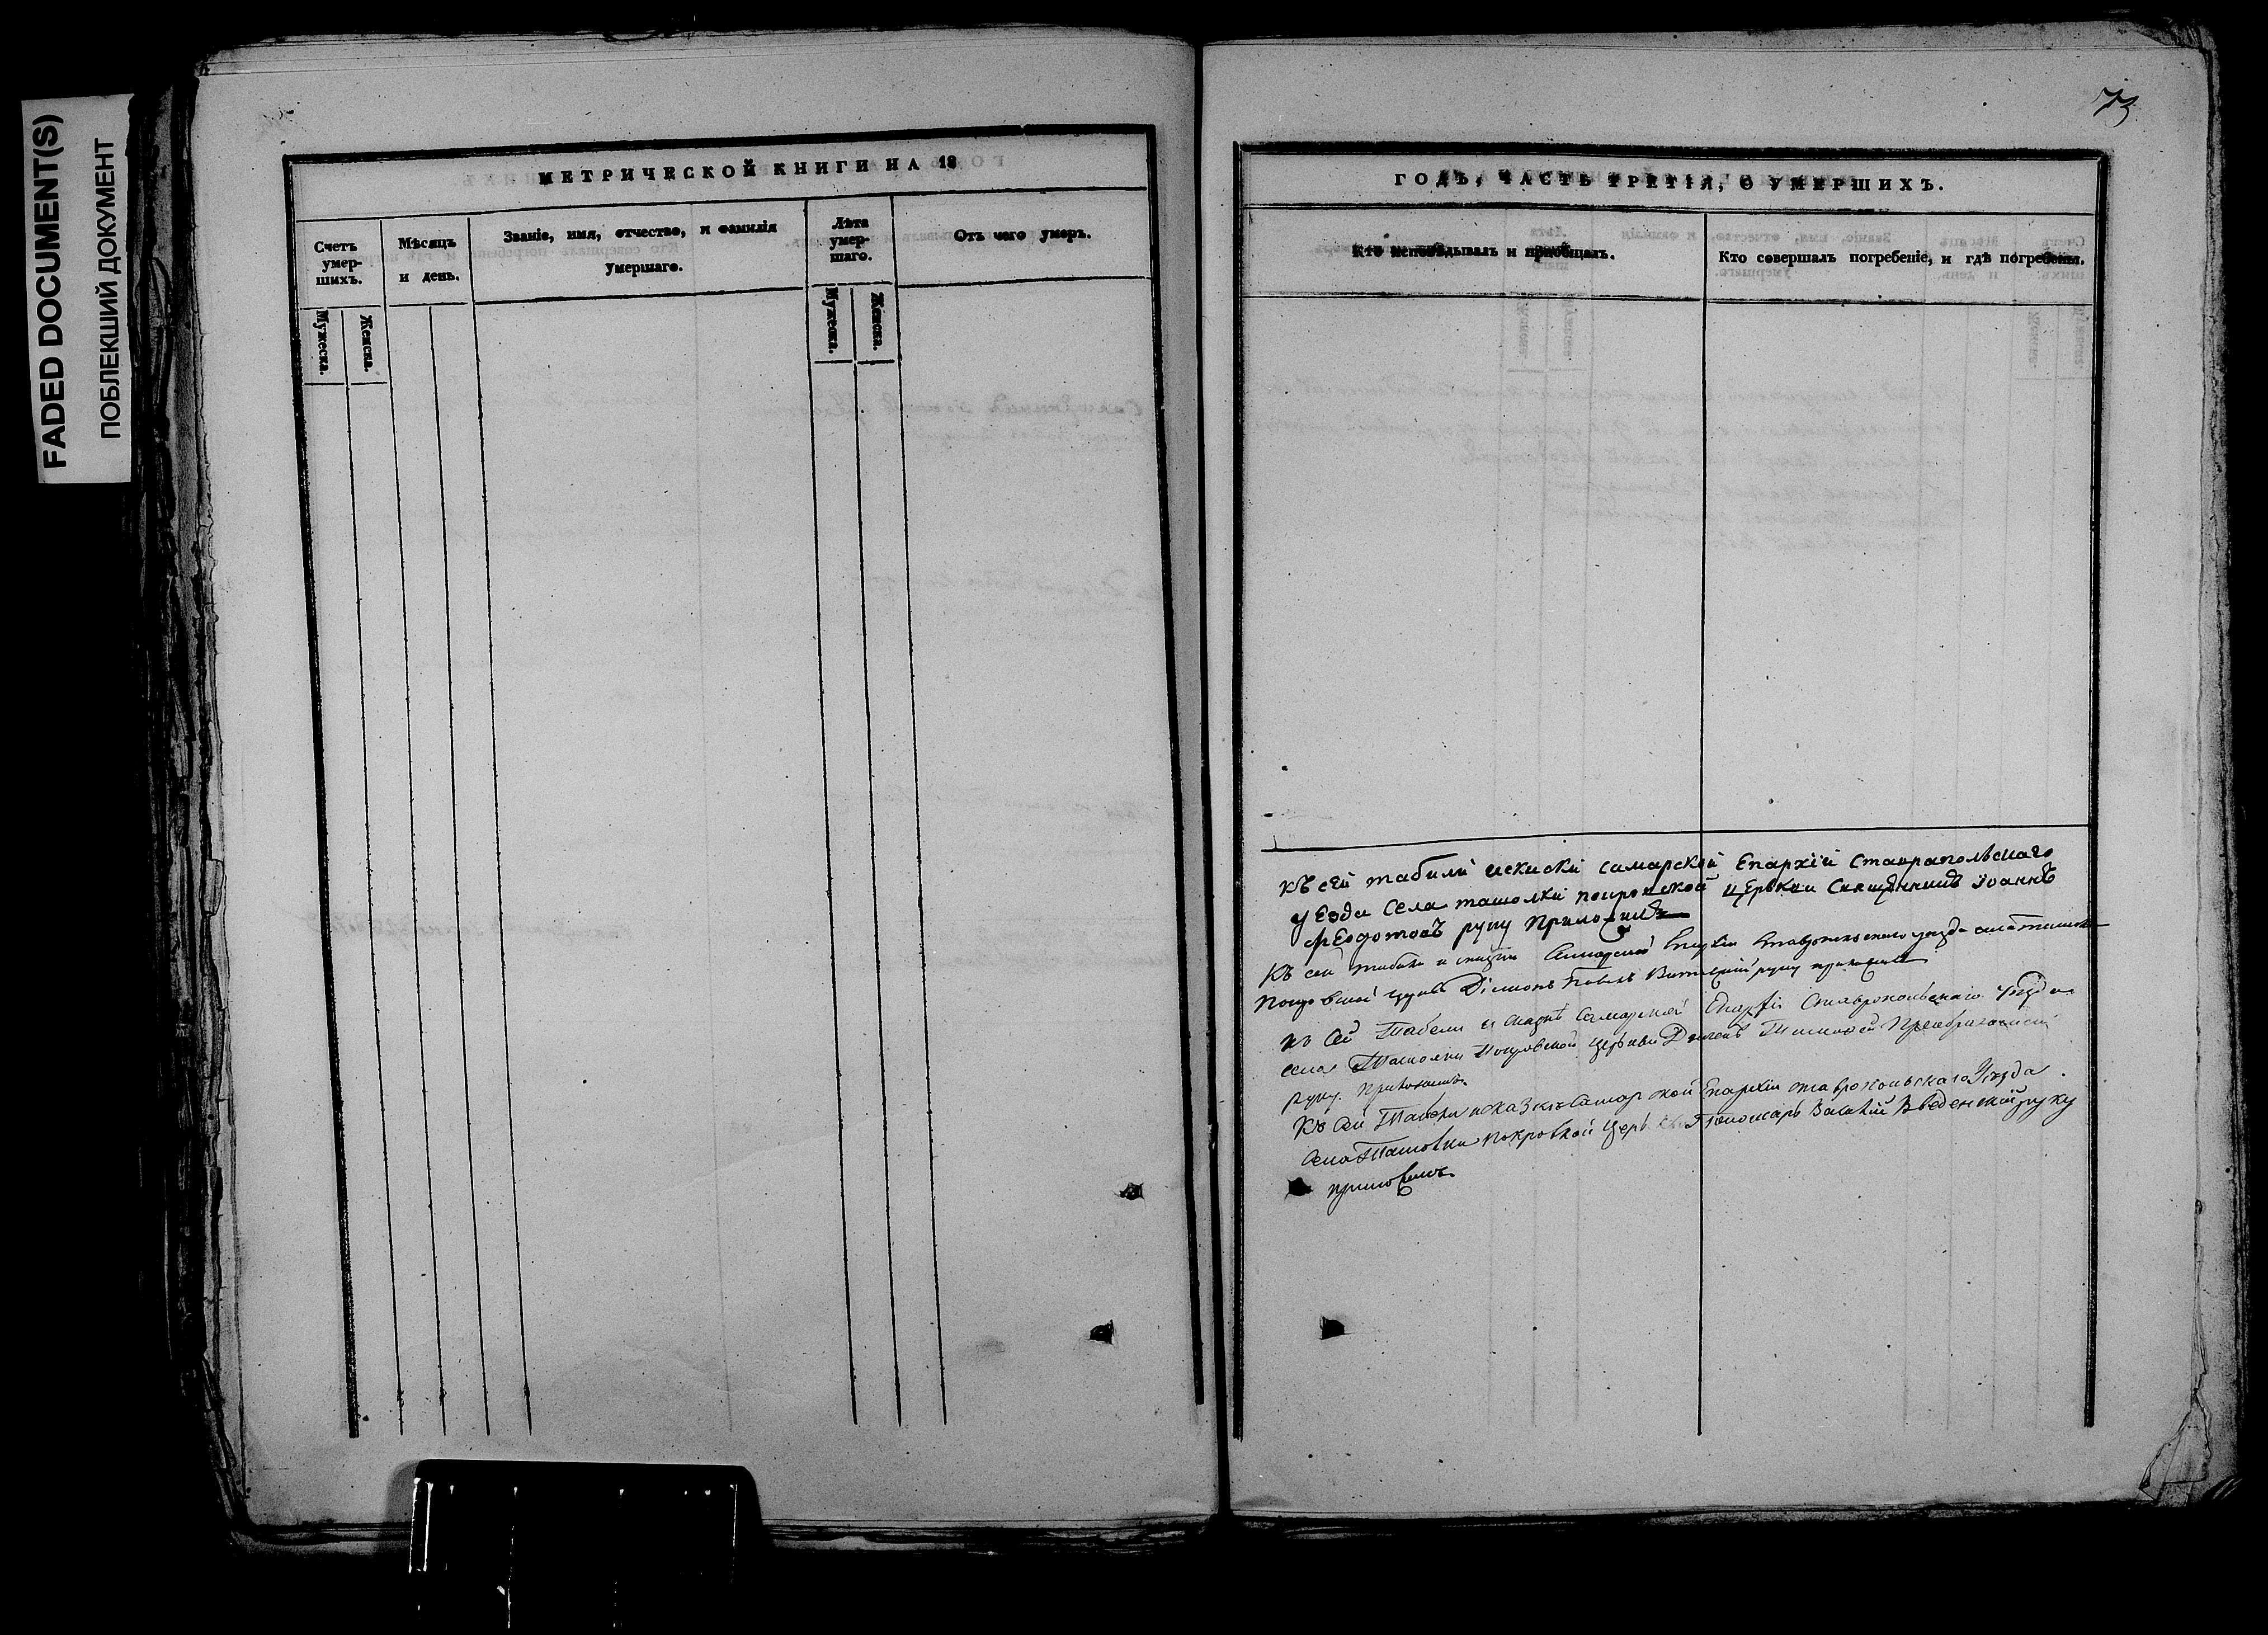 FADED DOCUMENT(S)
ПОБЛЕКШИЙ ДОКУМЕНТ
73
МЕТРИЧЕСКОЙ КНИГИ НА 18
Счетъ умер-шихъ.
Мужеска.
Женска.
Мѣсяцъ и день.
Званіе, имя, отчество, и фамилія умершаго.
Лѣта умер-шаго.
Мужеска.
Женска.
Отъ чего умеръ.
ГОДЪ, ЧАСТЬ ТРЕТІЯ, О УМЕРШИХЪ.
Кто исповѣдывалъ и пріобщалъ.
Кто совершалъ погребеніе, и гдѣ погребены.
Къ сей табили самарской Епархіи Ставрапольскаго
уезда Села ташолки покровской церькви Священникъ Іоаннъ
Ѳеодотовъ руку Приложилъ
Къ сей табели и Самарской Епархіи Ставропольскаго уѣзда села
Покровской церкви Діаконъ Павелъ руку приложилъ
Къ Сей Табели и Самарской Епархіи Ставропольскаго Уѣзда
села Ташолки Покровской Церькви Дьячекъ Тимофей Преображенскій
руку Приложилъ
Къ Сей Табели Самарской Епархіи ставропольскаго Уезда
Села Покровской Церькви Пономарь Василій Введенскій руку
приложилъ